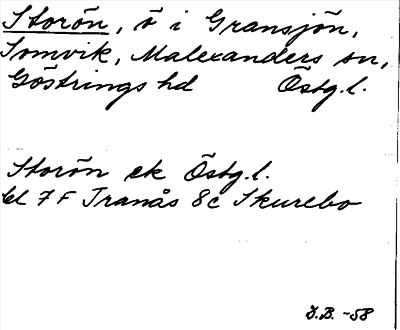 Storön, ö i Gransjön,
Tomvik, Malexanders sn,
Göstrings hd Östg.l.
Storön ek Östg.l.
bl 7 F Tranås 8c Skurebo
J.B. -58